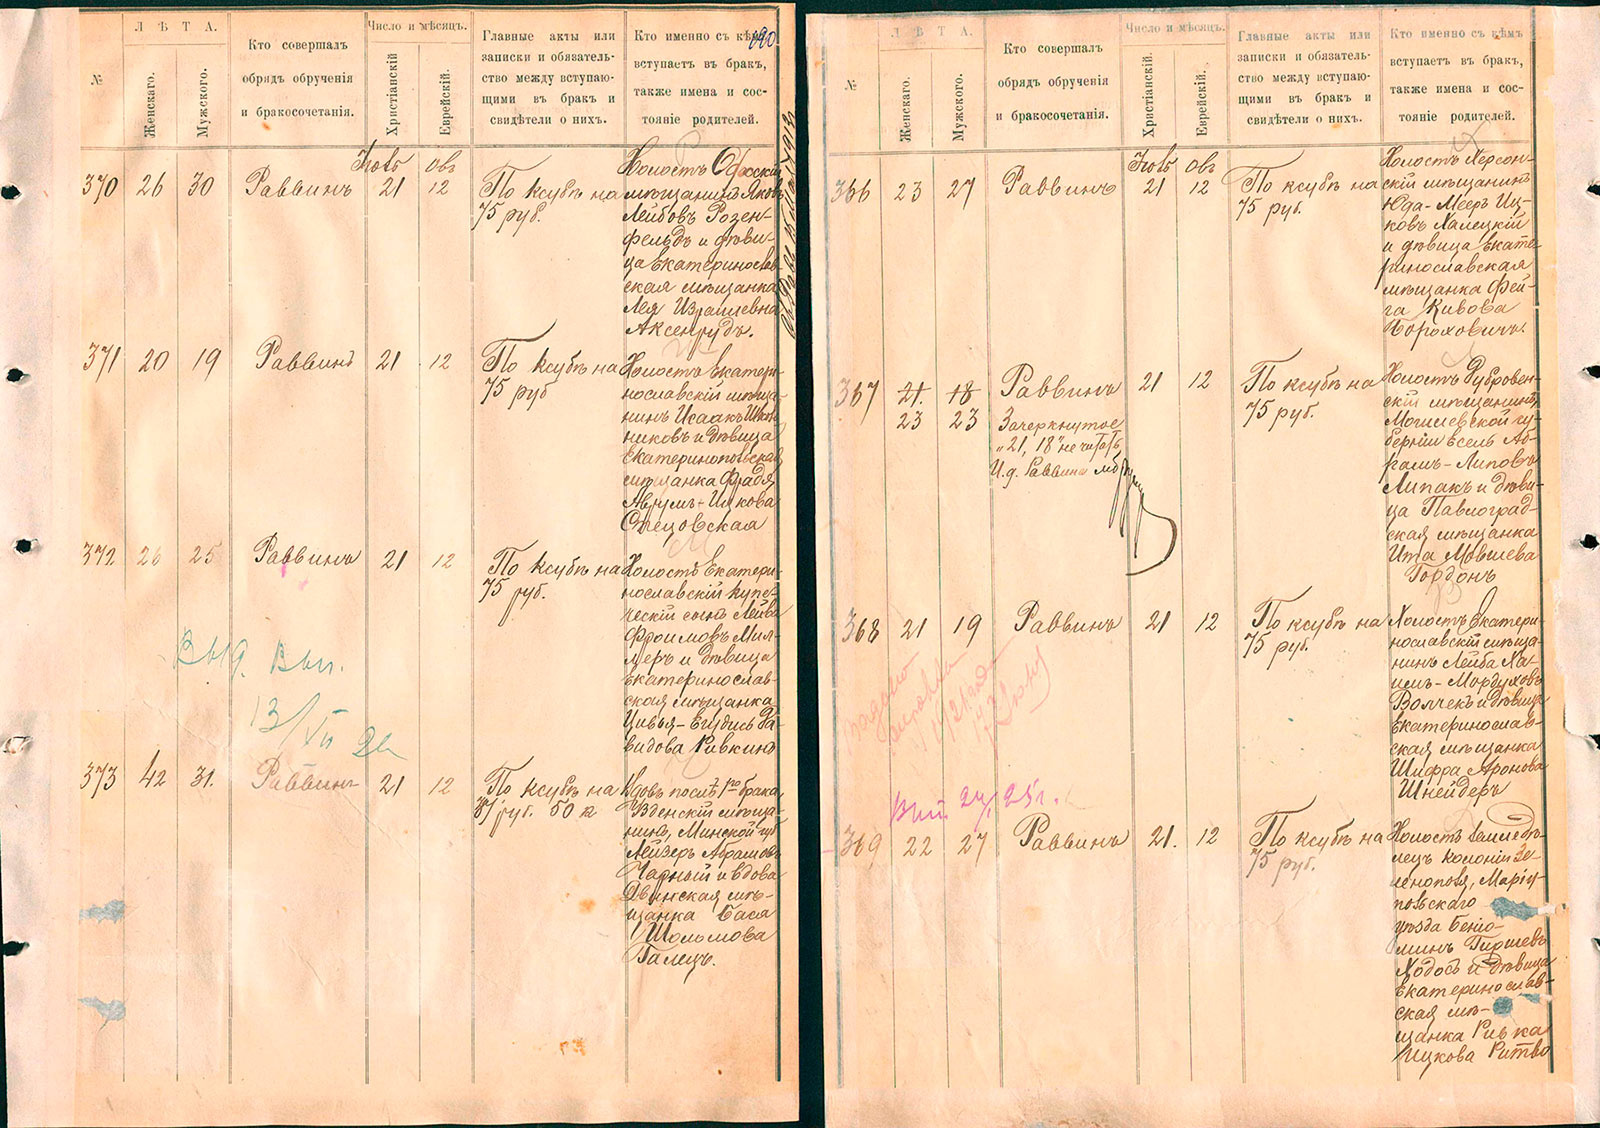 №
Л Ѣ Т А.
Женскаго.
Мужского.
Кто совершалъ
обрядъ обрученія
и бракосочетанія.
Число и мѣсяцъ.
Христіанскій.
Еврейскій.
Главные акты или
записки и обязатель-
ство между вступаю-
щими въ бракъ и
свидѣтели о нихъ.
Кто именно съ кѣмъ
вступаетъ въ бракъ,
также имена и сос-
тояніе родителей.
370 26 30 Раввинъ 21 12
По ксубѣ на
75 руб.
Холостъ
мѣщанинъ
Лейбовъ Розен-
фельдъ и дѣви-
ца Екатеринослав-
ская мѣщанка
Лея Израилевна
Аксенрудъ.
371 20 19 Раввинъ 21 12
По ксубѣ на
75 руб
Холостъ Екатери-
нославскій мѣща-
нинъ Исаакъ
и дѣвица
мѣщанка Фрадя
Аврумъ-Ицкова
372 26 25 Раввинъ 21 12
По ксубѣ на
75 руб.
Холостъ Екатери-
нославскій купе-
ческій сынъ Лейба
Фроимовъ Мил-
леръ и дѣвица
Екатеринослав-
ская мѣщанка
Цивья- Да-
видова Ривкина
Выд. Вып.
13/VII
373 42 31. Раввинъ 21 12
По ксубѣ на
87 руб. 50 к
Вдовъ послѣ 1го брака
мѣща-
нинъ, Минской губ
Лейзеръ Абрамовъ
Чарный и вдова
Двинская мѣ-
щанка Бася
Шоломова
Палецъ.
№
Л Ѣ Т А.
Женскаго.
Мужского.
Кто совершалъ
обрядъ обрученія
и бракосочетанія.
Число и мѣсяцъ.
Христіанскій.
Еврейскій.
Главные акты или
записки и обязатель-
ство между вступаю-
щими въ бракъ и
свидѣтели о нихъ.
Кто именно съ кѣмъ
вступаетъ въ бракъ,
также имена и сос-
тояніе родителей.
366 23 27 Раввинъ 21 12
По ксубѣ на
75 руб.
Холостъ Херсон-
скій мѣщанинъ
Юда-Мееръ Иц-
ковъ Халецкій
и дѣвица Екате-
ринославская
мѣщанка Фей-
га Кивова
Бороховичъ.
367 21. 18 Раввинъ 21 12
23 23 Зачеркнутое
„21, 18" не читать
И. д. Раввина
По ксубѣ на
75 руб.
Холостъ Дубровен-
скій мѣщанинъ
Могилевской гу-
берніи Есель Аб-
рамъ-Липовъ
Липакъ и дѣви-
ца Павлоград-
ская мѣщанка
Ита Мовшева
Гордонъ
368 21 19 Раввинъ 21 12
По ксубѣ на
75 руб.
Холостъ Екатери-
нославскій мѣща-
нинъ Лейба Ха-
имъ-Мордуховъ
Волчекъ и дѣвица
Екатеринослав-
ская мѣщанка
Шифра Аронова
Шнейдеръ
369 22 27 Раввинъ 21. 12
По ксубѣ на
75 руб.
Холостъ
лецъ колоніи Зе-
ленополя, Маріу-
польскаго
уѣзда Беніа-
минъ Гиршевъ
Ходосъ и дѣвица
Екатеринослав-
ская мѣ-
щанка Ривка
Ицкова Ритво